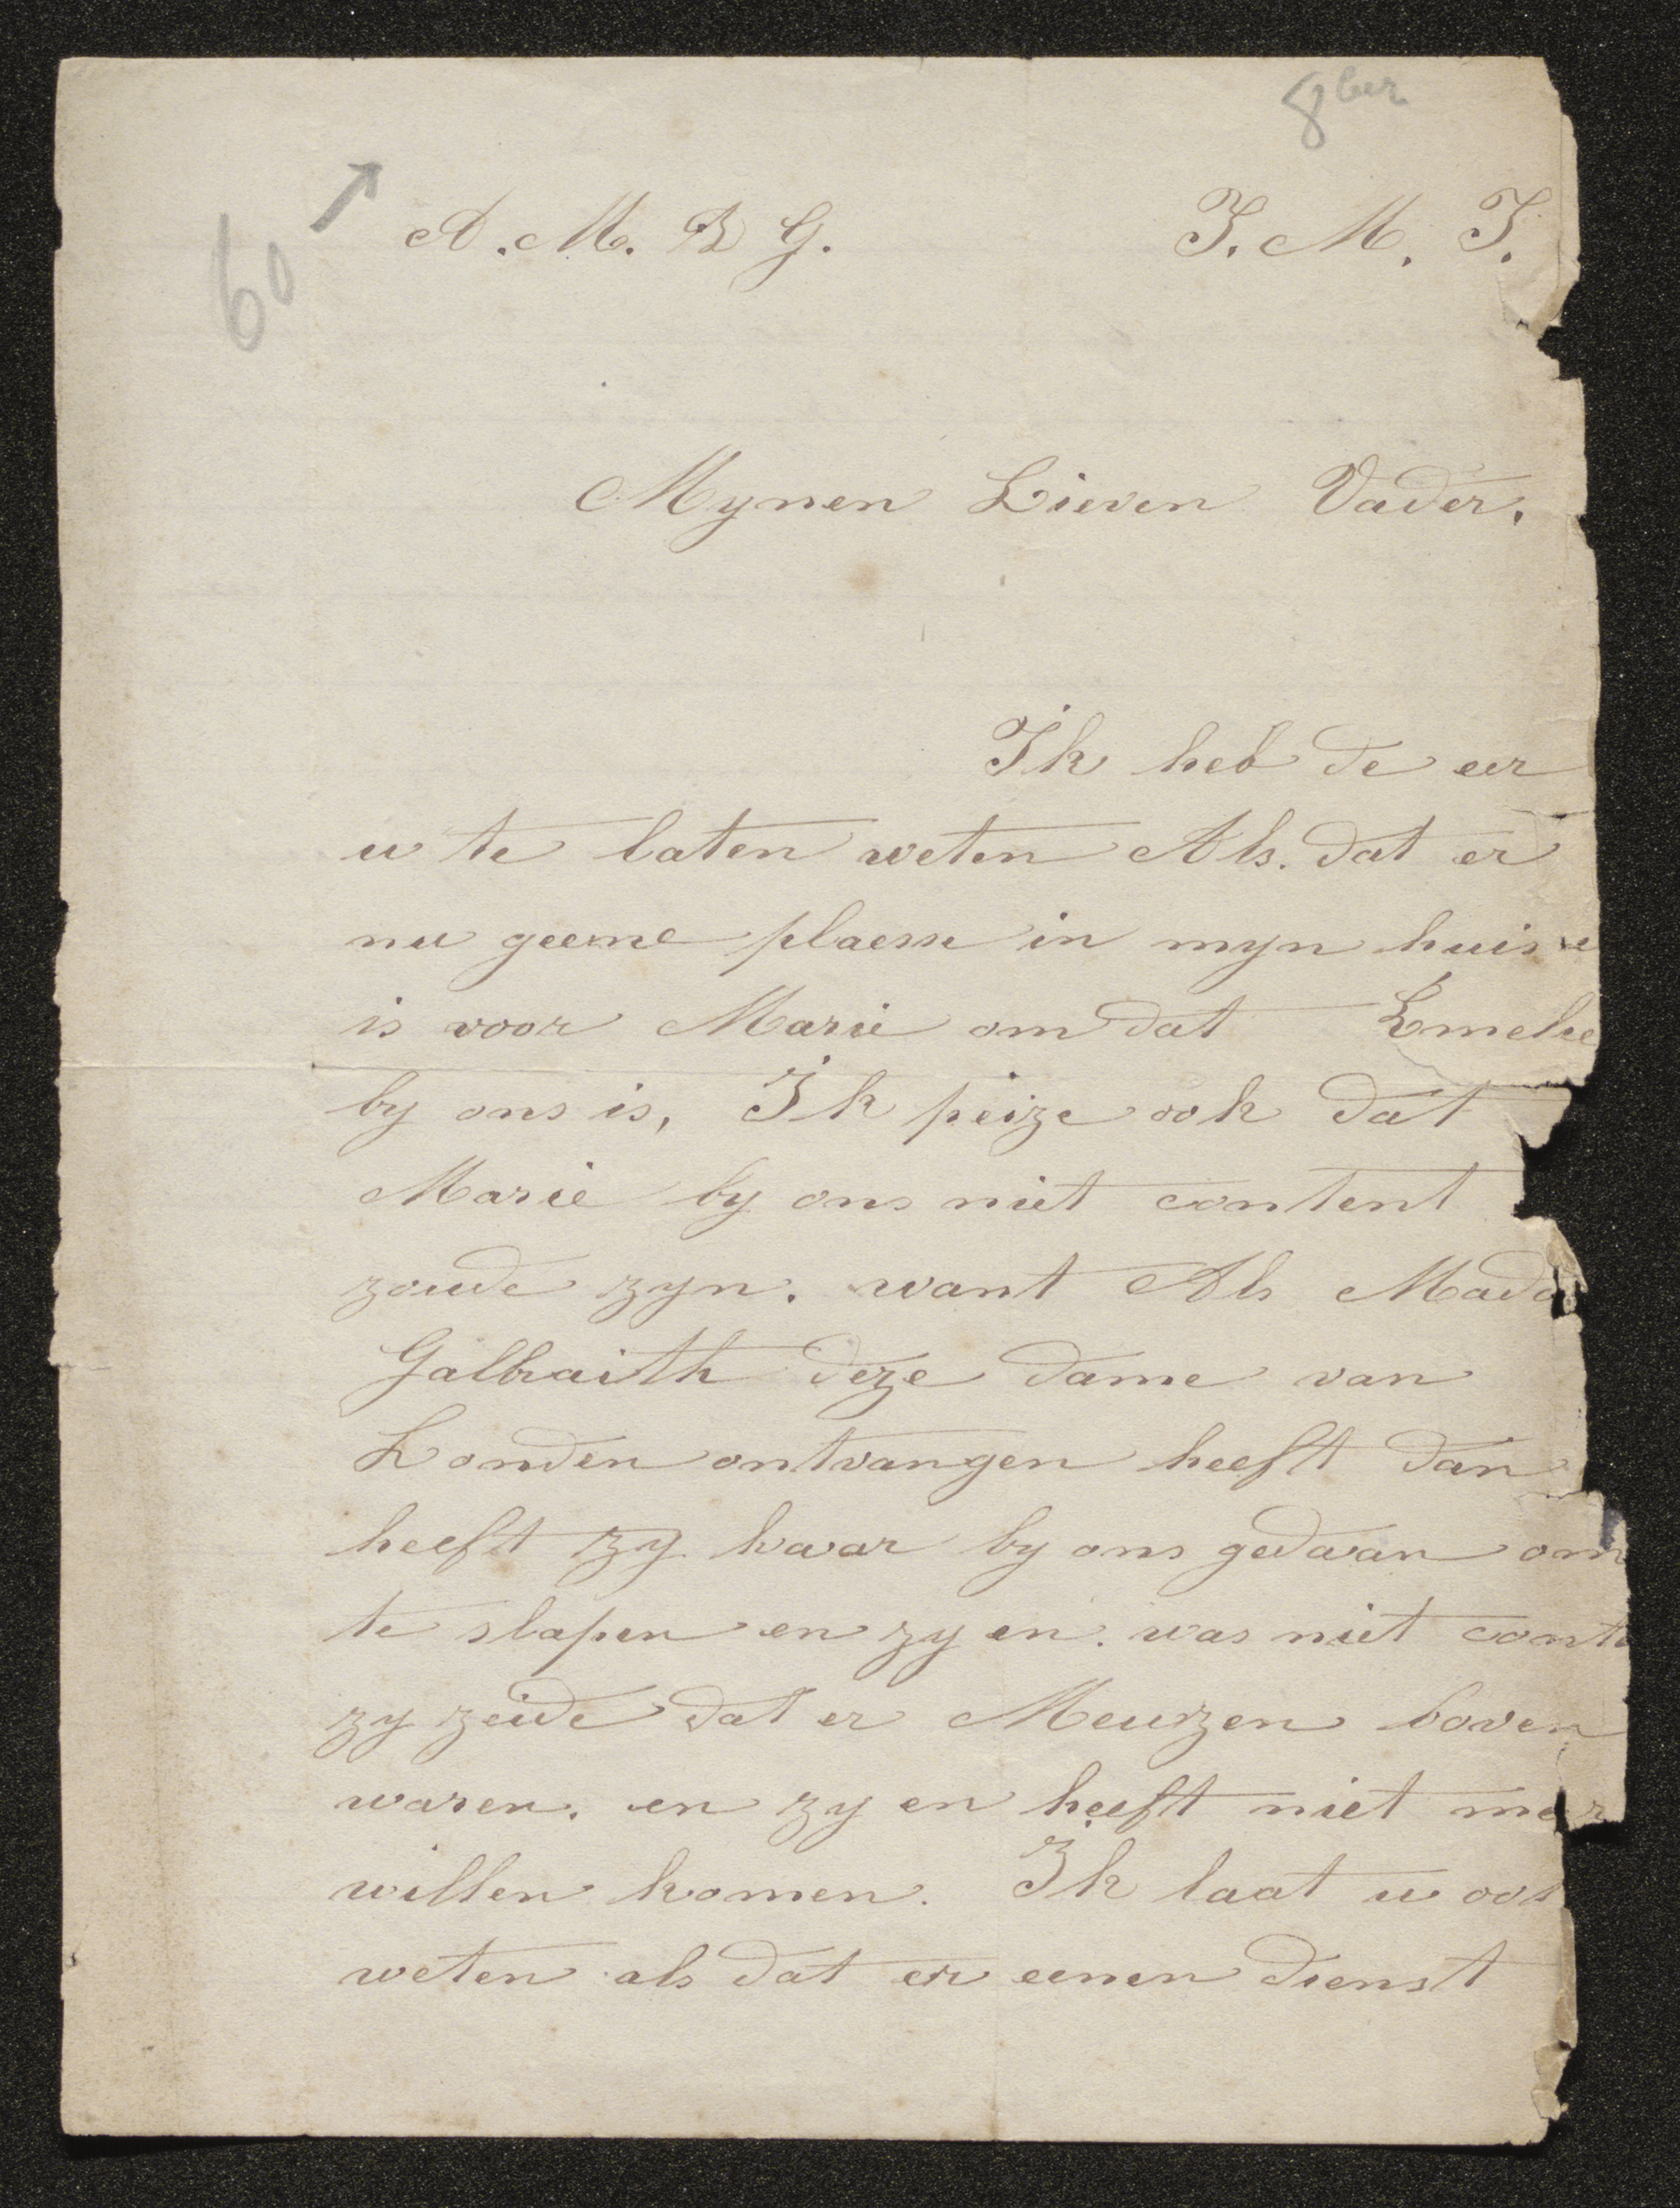 8ber
60
A. M. D G. J. M. J.
Mynen Lieven Vader,
Ik heb de eer
u te laten weten Als. dat er
nu geene plaesse in myn huis
is voor Marie om dat Emelie
by ons is, Ik peize ook dat
Marie by ons niet content
zoude zyn. want Als Mada
Galbraith deze dame van
Londen ontvangen heeft dan
heeft zy haar by ons gedaan om
te slapen en zy en. was niet conte
zy zeide dat er Meuzen boven
waren. en zy en heeft niet meer
willen komen. Ik laat u ook
weten als dat er eenen dienst